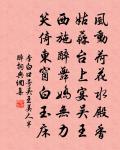 風動荷花水殿香
姑蘇台上宴吳王
西施醉舞嬌無力
笑倚東窗白玉床
李白口號吳王美人半
醉詞典調集